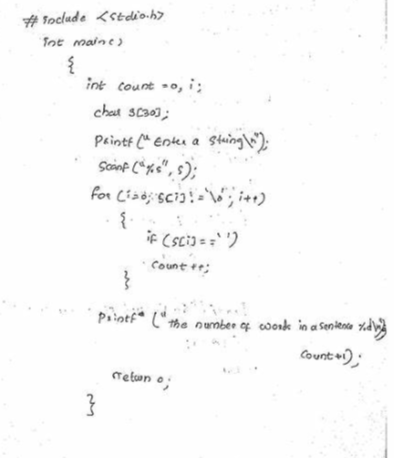 # include <stdio.h>
int main()
{
int count =0, i;
char s[30];
Printf ("Enter a string\n");
Scanf ("%s", s);
for (i=0; s[i]!='\0'; i++)
{
if (s[i]==' ')
Count ++;
}
Printf ("the number of words in a sentence %d\n",
Count+1);
return 0;
}